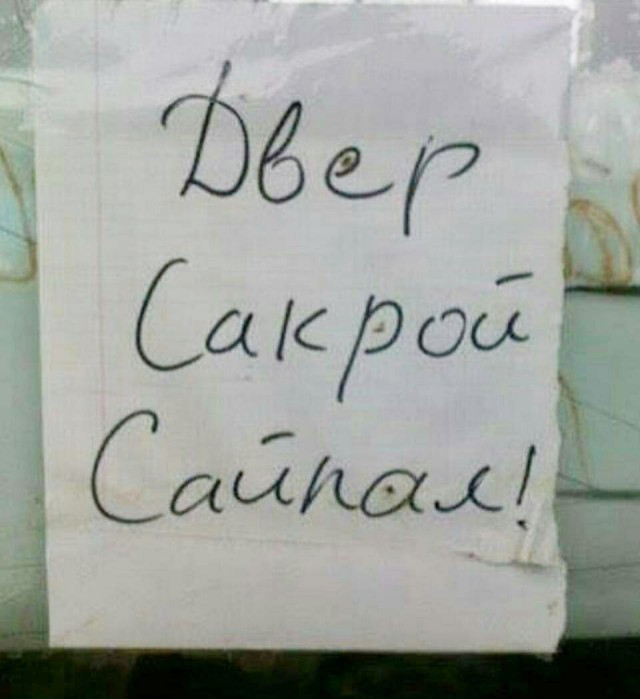 Двер
Сакрой
Сайпал!